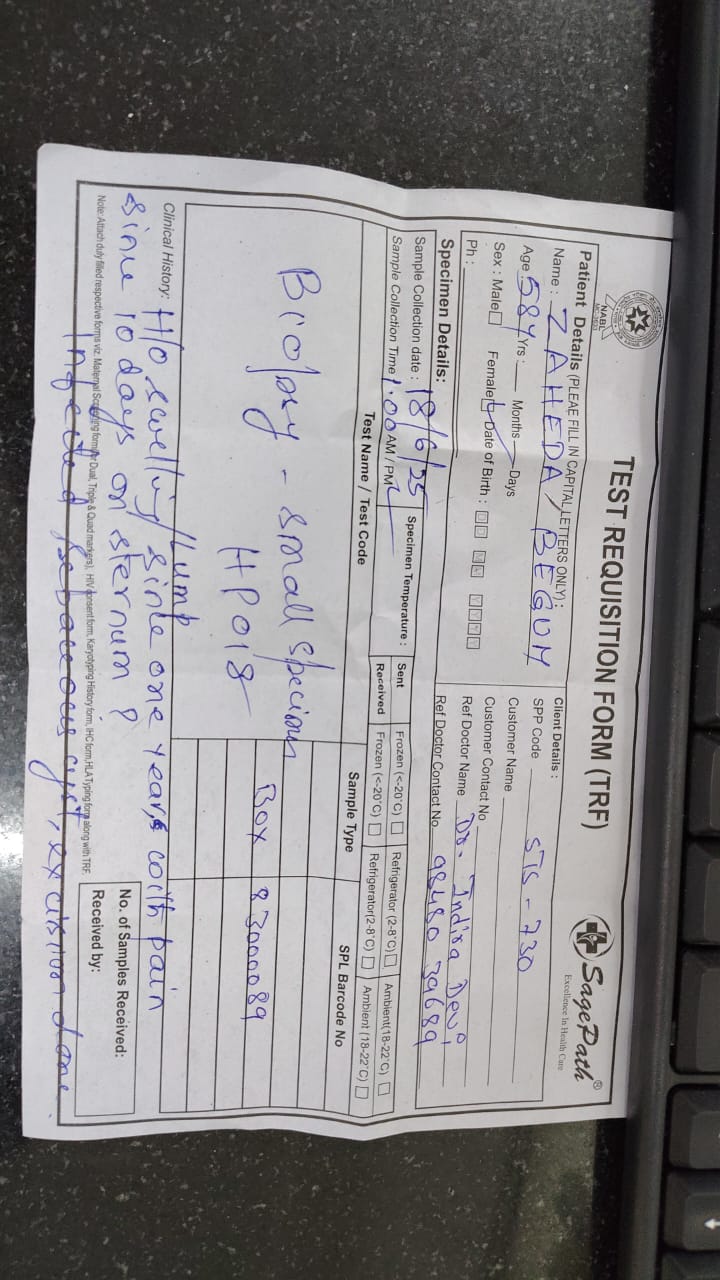 TEST REQUISITION FORM (TRF)
NABL
SagePath®
Excellence In Health Care
Patient Details (PLEAE FILL IN CAPITAL LETTERS ONLY) :
Name : ZAHEDA BEGUM
Age 58Y Yrs : Months Days
Sex : Male Female Date of Birth :
Ph :
Client Details :
SPP Code STS - 730
Customer Name
Customer Contact No
Ref Doctor Name Dr. Indira Devi
Ref Doctor Contact No 98480 39689
Specimen Details:
Sample Collection date : 18/6/25
Sample Collection Time 1:00 AM / PM
Specimen Temperature :
Sent Frozen (<-20°C) Refrigerator (2-8°C) Ambient(18-22°C)
Received Frozen (<-20°C) Refrigerator(2-8°C) Ambient (18-22°C)
Test Name / Test Code Sample Type SPL Barcode No
Biopsy - small specimen Box 83000089
HP018
Clinical History: H/O swelling/lump since one years with pain
since 10 days on sternum ?
Infected sebaceous cyst, excision done.
No. of Samples Received:
Received by:
Note: Attach duly filled respective forms viz. Maternal Screening form (for Dual, Triple & Quad markers), HIV consent form, Karyotyping History form, IHC form, HLA Typing form along with TRF.